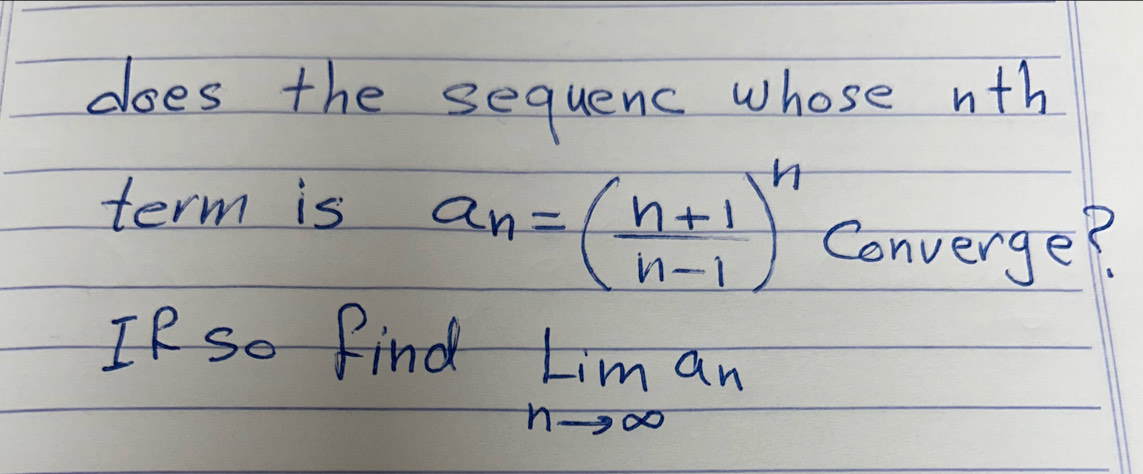 does the sequenc whose nth
term is an = (n+1/n-1)^n Converge?
If so find Lim an
n→∞